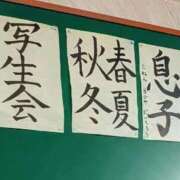 息子
春夏
秋冬
写生会